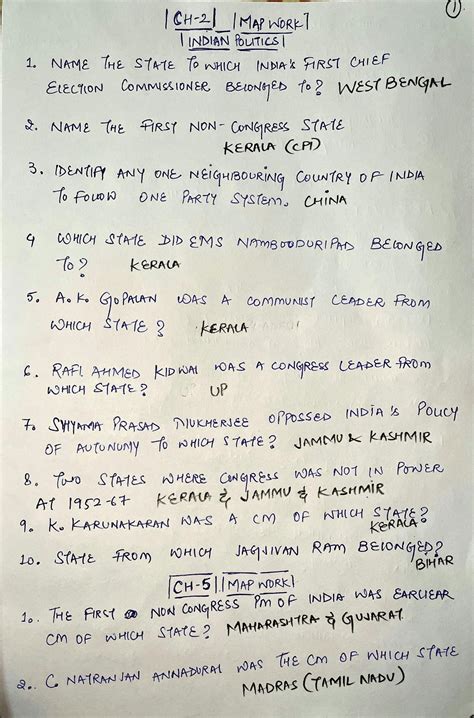 1
CH-2 MAP WORK
INDIAN POLITICS
1. NAME THE STATE TO WHICH INDIA'S FIRST CHIEF
ELECTION COMMISSIONER BELONGED TO? WEST BENGAL
2. NAME THE FIRST NON-CONGRESS STATE
KERALA (CPI)
3. IDENTIFY ANY ONE NEIGHBOURING COUNTRY OF INDIA
TO FOLLOW ONE PARTY SYSTEM. CHINA
4 WHICH STATE DID EMS NAMBOODURIPAD BELONGED
TO? KERALA
5. A.K. GOPALAN WAS A COMMUNIST LEADER FROM
WHICH STATE? KERALA
6. RAFI AHMED KIDWAI WAS A CONGRESS LEADER FROM
WHICH STATE? UP
7. SHYAMA PRASAD MUKHERJEE OPPOSSED INDIA'S POLICY
OF AUTONOMY TO WHICH STATE? JAMMU & KASHMIR
8. TWO STATES WHERE CONGRESS WAS NOT IN POWER
AT 1952-67 KERALA & JAMMU & KASHMIR
9. K. KARUNAKARAN WAS A CM OF WHICH STATE?
KERALA
10. STATE FROM WHICH JAGJIVAN RAM BELONGED?
BIHAR
CH-5 MAP WORK
1. THE FIRST NON CONGRESS PM OF INDIA WAS EARLIEAR
CM OF WHICH STATE? MAHARASHTRA & GUJARAT
2. C NATRANJAN ANNADURAI WAS THE CM OF WHICH STATE
MADRAS (TAMIL NADU)